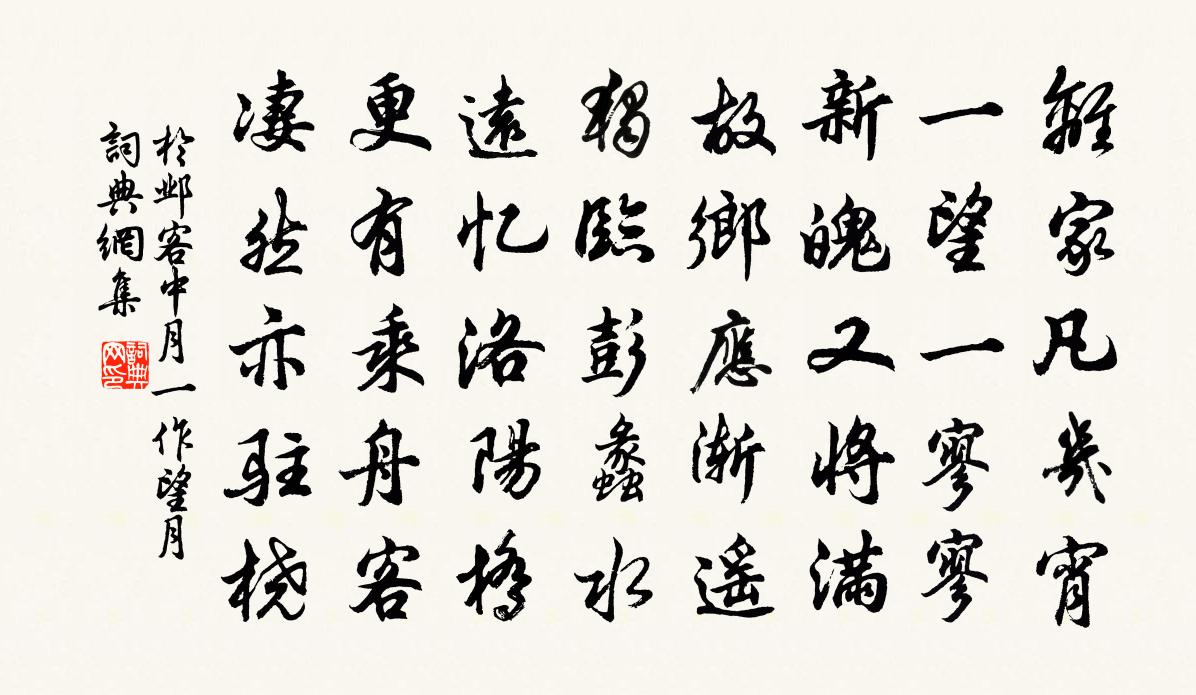 離家凡幾宵
一望一寥寥
新魄又將滿
故鄉應漸遥
獨臨彭蠡水
遠忆洛陽橋
更有乘舟客
凄然亦駐橈
於邺客中月一作望月
詞典網集
詞典网印